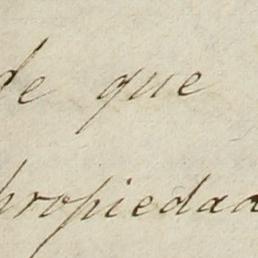 de que
propiedad